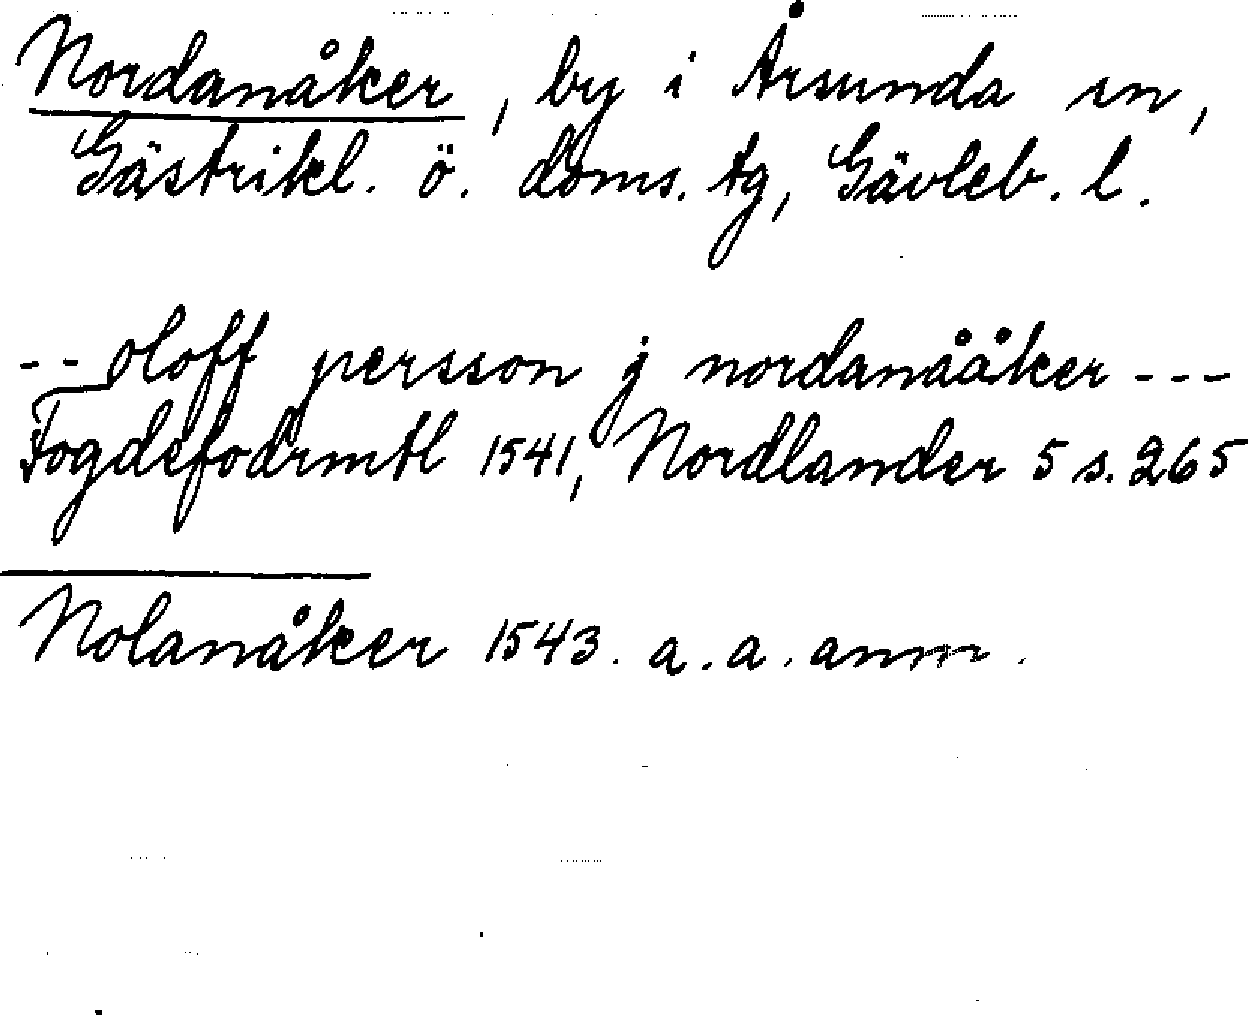 Nordanåker, by i Årsunda sn,
Gästrikl. ö. doms. tg, Gävleb. l.
-- oloff persson j nordanååker ---
Fogdefodrmtl 1541, Nordlander 5 s. 265
Nolanåker 1543. a. a. anm.